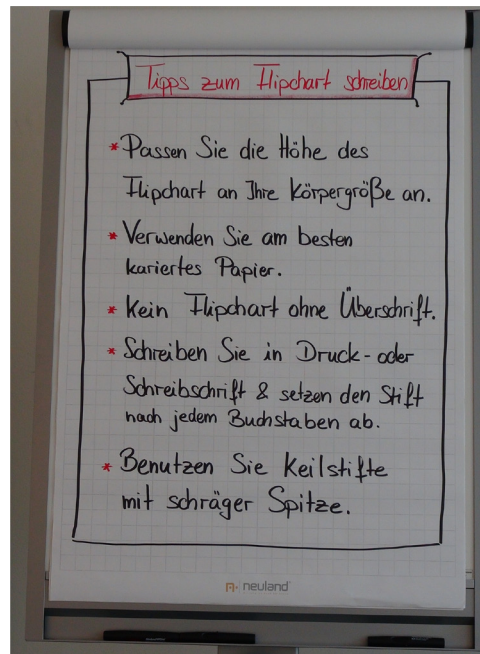 Tipps zum Flipchart schreiben
* Passen Sie die Höhe des
Flipchart an Ihre Körpergröße an.
* Verwenden Sie am besten
kariertes Papier.
* Kein Flipchart ohne Überschrift.
* Schreiben Sie in Druck- oder
Schreibschrift & setzen den Stift
nach jedem Buchstaben ab.
* Benutzen Sie Keilstifte
mit schräger Spitze.
neuland